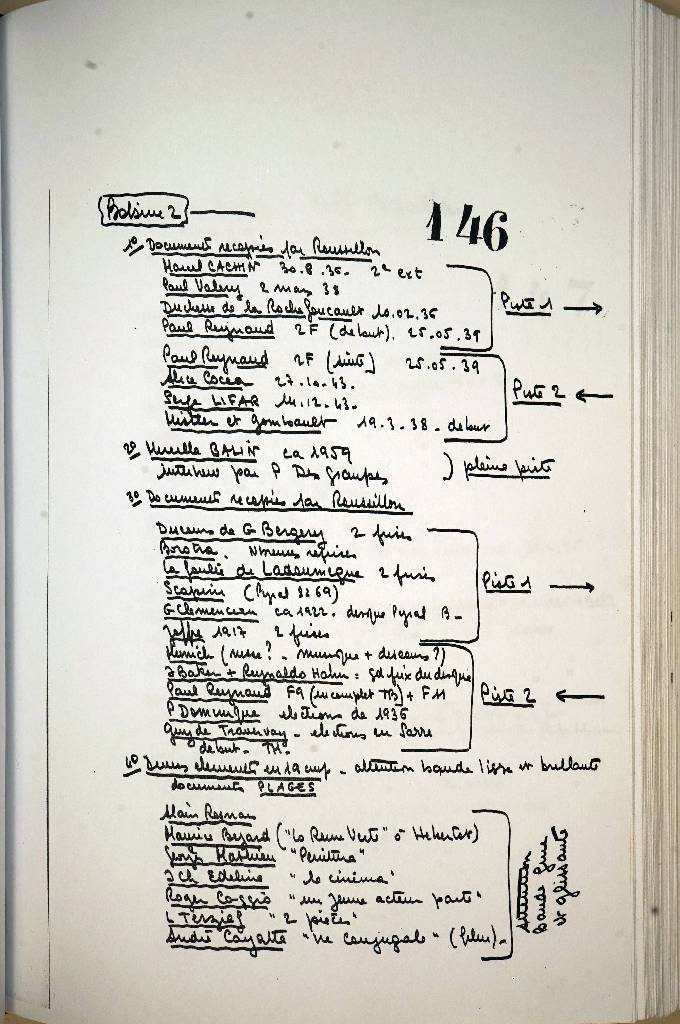 Bobine 2
146
1º Documents recopiés par Roussillon
Marcel CACHIN 30.8.35. 2e ext
Paul Valery 2 mars 38
Duchesse de la Rochefoucault 10.02.36
Paul Reynaud 2F (début). 25.05.39
Piste 1 →
Paul Reynaud 2F (suite) 25.05.39
Alice Cocea 27.10.43.
Serge LIFAR 14.12.43.
Mistler et Gombault 19.3.38. debut
Piste 2 ←
2º Mireille BALIN ca 1959
interview par P Des Graupes
) pleine piste
3º Documents recopiés par Roussillon
Discours de G Bergery 2 faces
Borotra.
La foulée de Ladoumègue 2 faces
Scapini (Pyral 2269)
G Clemenceau ca 1922. disque Pyral B-
Joffre 1917 2 faces
Piste 1 →
Munich (russe? - musique + discours?)
J Baker + Reynaldo Hahn = Gd prix du disque
Paul Reynaud F9 (incomplet TB) + F11
P Dominique elections de 1936
Guy de Traversay - elections en Sarre
debut - TM.
Piste 2 ←
4º Divers elements en 19 cm/s - attention bande lisse et brillante
documents PLAGES
Alain Resnais
Maurice Bejard ("La Reine Verte" à Hebertot)
Georges Mathieu
J Ch Edeline "le cinéma"
Roger Coggio "un jeune acteur parle"
L Terzieff "2 pieces"
André Cayatte "Vie conjugale" (film).
attention
bande fine
et glissante